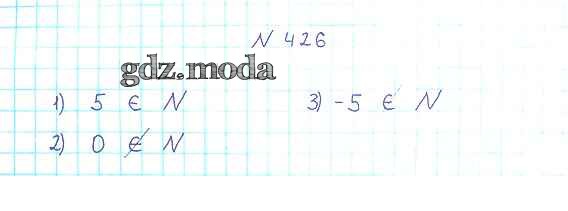 N 426
gdz.moda
1) 5 ∈ N 3) -5 ∉ N
2) 0 ∉ N